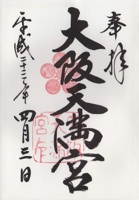 奉拝
大阪天満宮
平成二十三年四月三日